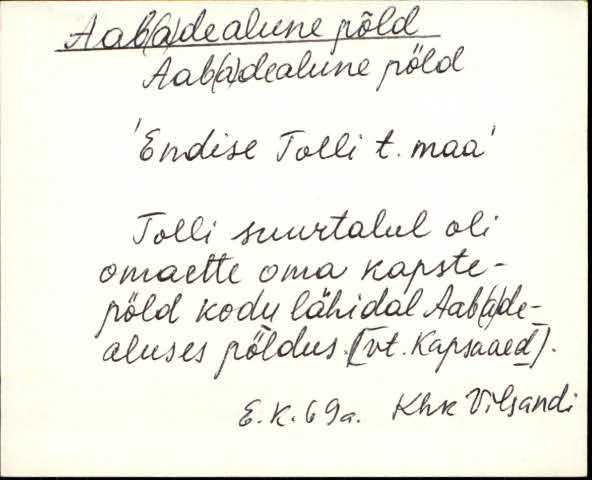 Aab(a)dealune põld
Aab(a)dealune põld
'Endise Tolli t. maa'
Tolli suurtalul oli
omaette oma kapste-
põld kodu lähidal Aab(a)de-
aluses põldus. [vt. Kapsaaed].
E.K. 69a. Khk Vilsandi